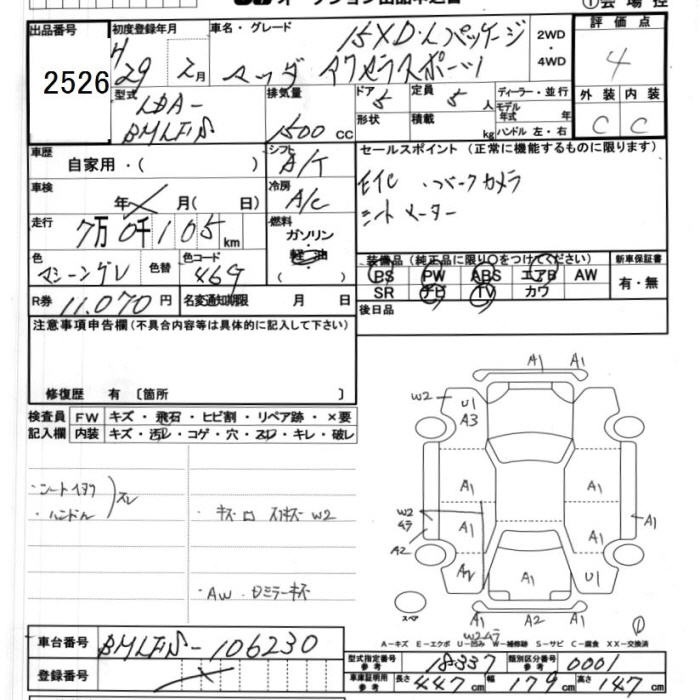 出品番号 2526
初度登録年月 H 29 2月
車名・グレード 15XD・Lパッケージ
マツダ アクセラスポーツ
2WD ・ 4WD
評価点 4
外装 C 内装 C
型式 LDA- BMLFS
排気量 1500 CC
ドア 5 定員 5 人
形状 積載 kg
ディーラー・並行
モデル年式 年
ハンドル 左・右
車歴 自家用・( )
シフト A/T
セールスポイント (正常に機能するものに限ります)
ETC ・バックカメラ
シートヒーター
車検 年 月( 日)
冷房 A/C
走行 7万0千105km
燃料 ガソリン 軽油 ( )
色 マシーングレー 色替 色コード 46G
装備品 (純正品に限り○をつけてください) 新車保証書
PS PW ABS エアB AW 有・無
SR ナビ TV カワ
R券 11,070円 名変通知期限 月 日
後日品
注意事項申告欄 (不具合内容等は具体的に記入して下さい)
修復歴 有 〔箇所 〕
検査員記入欄 FW キズ・飛石・ヒビ割・リペア跡・×要
内装 キズ・汚レ・コゲ・穴・スレ・キレ・破レ
・シートイタク
・ハンドル スレ
W2
・AW・ロミラーキズ
A1 A1
W2 U1 A3 A1
A1 A1
W2 ムラ A1 A1 A1
A2
A2 A1 U1
スペア
A1 A2 A1
W2ムラ
①
A-キズ E-エクボ U-凹み W-補修跡 S-サビ C-腐食 XX-交換済
車台番号 BMLFS-106230
登録番号
型式指定番号 参考 18337 類別区分番号 参考 0001
車庫証明用 参考 長さ 447cm 幅 179cm 高さ 147cm